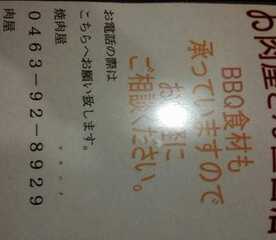 お肉屋
BBQ食材も
承っていますので
お気軽に
ご相談ください。
お電話の際は
こちらへお願い致します。
焼肉屋
0463-92-8929
肉屋